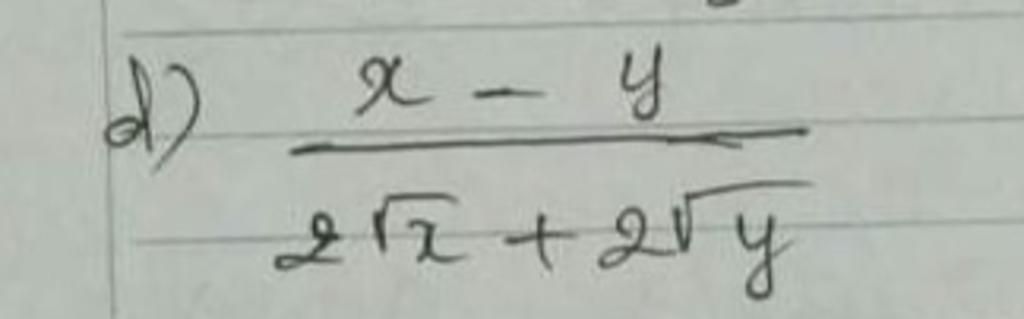 d) x - y
2√x + 2√y